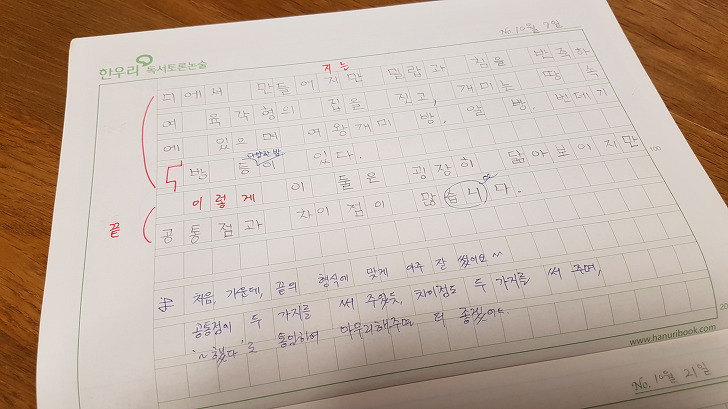 No. 10월 7일
한우리 독서토론논술
지는
디에서 만들어지만 밀랍과 침을 반죽하
여 육각형의 집을 짓고, 개미는 땅 속
에 있으며 여왕개미 방, 알 방, 번데기
방 등이 있다.
이렇게 이 둘은 굉장히 닮아보이지만
100
끝
공통점과 차이점이 많습니다.
처음, 가운데, 끝의 형식에 맞게 아주 잘 썼어요~
공통점이 두 가지를 써 주었듯, 차이점도 두 가지를 써 주며,
'~했다'로 통일하여 마무리해주면 더 좋겠어요.
20
www.hanuribook.com
No. 10월 21일